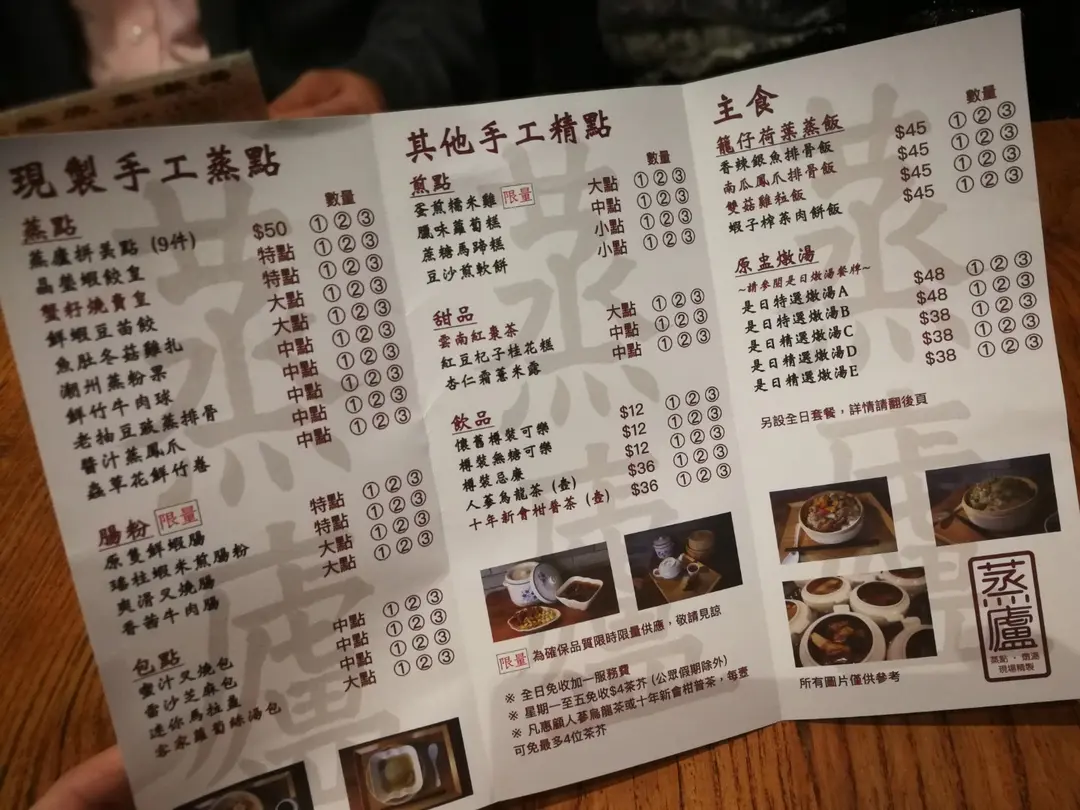 現製手工蒸點
蒸點 數量
蒸廬拼美點 (9件) $50 ①②③
晶瑩蝦餃皇 特點 ①②③
蟹籽燒賣皇 特點 ①②③
鮮蝦豆苗餃 大點 ①②③
魚肚冬菇雞扎 大點 ①②③
潮州蒸粉果 中點 ①②③
鮮竹牛肉球 中點 ①②③
老抽豆豉蒸排骨 中點 ①②③
醬汁蒸鳳爪 中點 ①②③
蟲草花鮮竹卷 中點 ①②③
腸粉 限量
原隻鮮蝦腸 特點 ①②③
瑤柱蝦米煎腸粉 特點 ①②③
爽滑叉燒腸 大點 ①②③
香茜牛肉腸 大點 ①②③
包點
蜜汁叉燒包 中點 ①②③
雷沙芝麻包 中點 ①②③
迷你馬拉盞 中點 ①②③
客家蘿蔔絲湯包 大點 ①②③
其他手工精點
煎點 數量
蛋煎糯米雞 限量 大點 ①②③
臘味蘿蔔糕 中點 ①②③
蔗糖馬蹄糕 小點 ①②③
豆沙煎軟餅 小點 ①②③
甜品
雲南紅棗茶 大點 ①②③
紅豆杞子桂花糕 中點 ①②③
杏仁霜薏米露 中點 ①②③
飲品
懷舊樽裝可樂 $12 ①②③
樽裝無糖可樂 $12 ①②③
樽裝忌廉 $12 ①②③
人蔘烏龍茶 (壺) $36 ①②③
十年新會柑普茶 (壺) $36 ①②③
限量 為確保品質限時限量供應，敬請見諒
※ 全日免收加一服務費
※ 星期一至五免收$4茶芥 (公眾假期除外)
※ 凡惠顧人蔘烏龍茶或十年新會柑普茶，每壺
可免最多4位茶芥
主食
籠仔荷葉蒸飯 數量
香辣銀魚排骨飯 $45 ①②③
南瓜鳳爪排骨飯 $45 ①②③
雙菇雞粒飯 $45 ①②③
蝦子榨菜肉餅飯 $45 ①②③
原盅燉湯
~請參閱是日燉湯餐牌~
是日特選燉湯A $48 ①②③
是日特選燉湯B $48 ①②③
是日精選燉湯C $38 ①②③
是日精選燉湯D $38 ①②③
是日精選燉湯E $38 ①②③
另設全日套餐，詳情請翻後頁
所有圖片僅供參考
蒸廬
蒸點・燉湯
現場精製